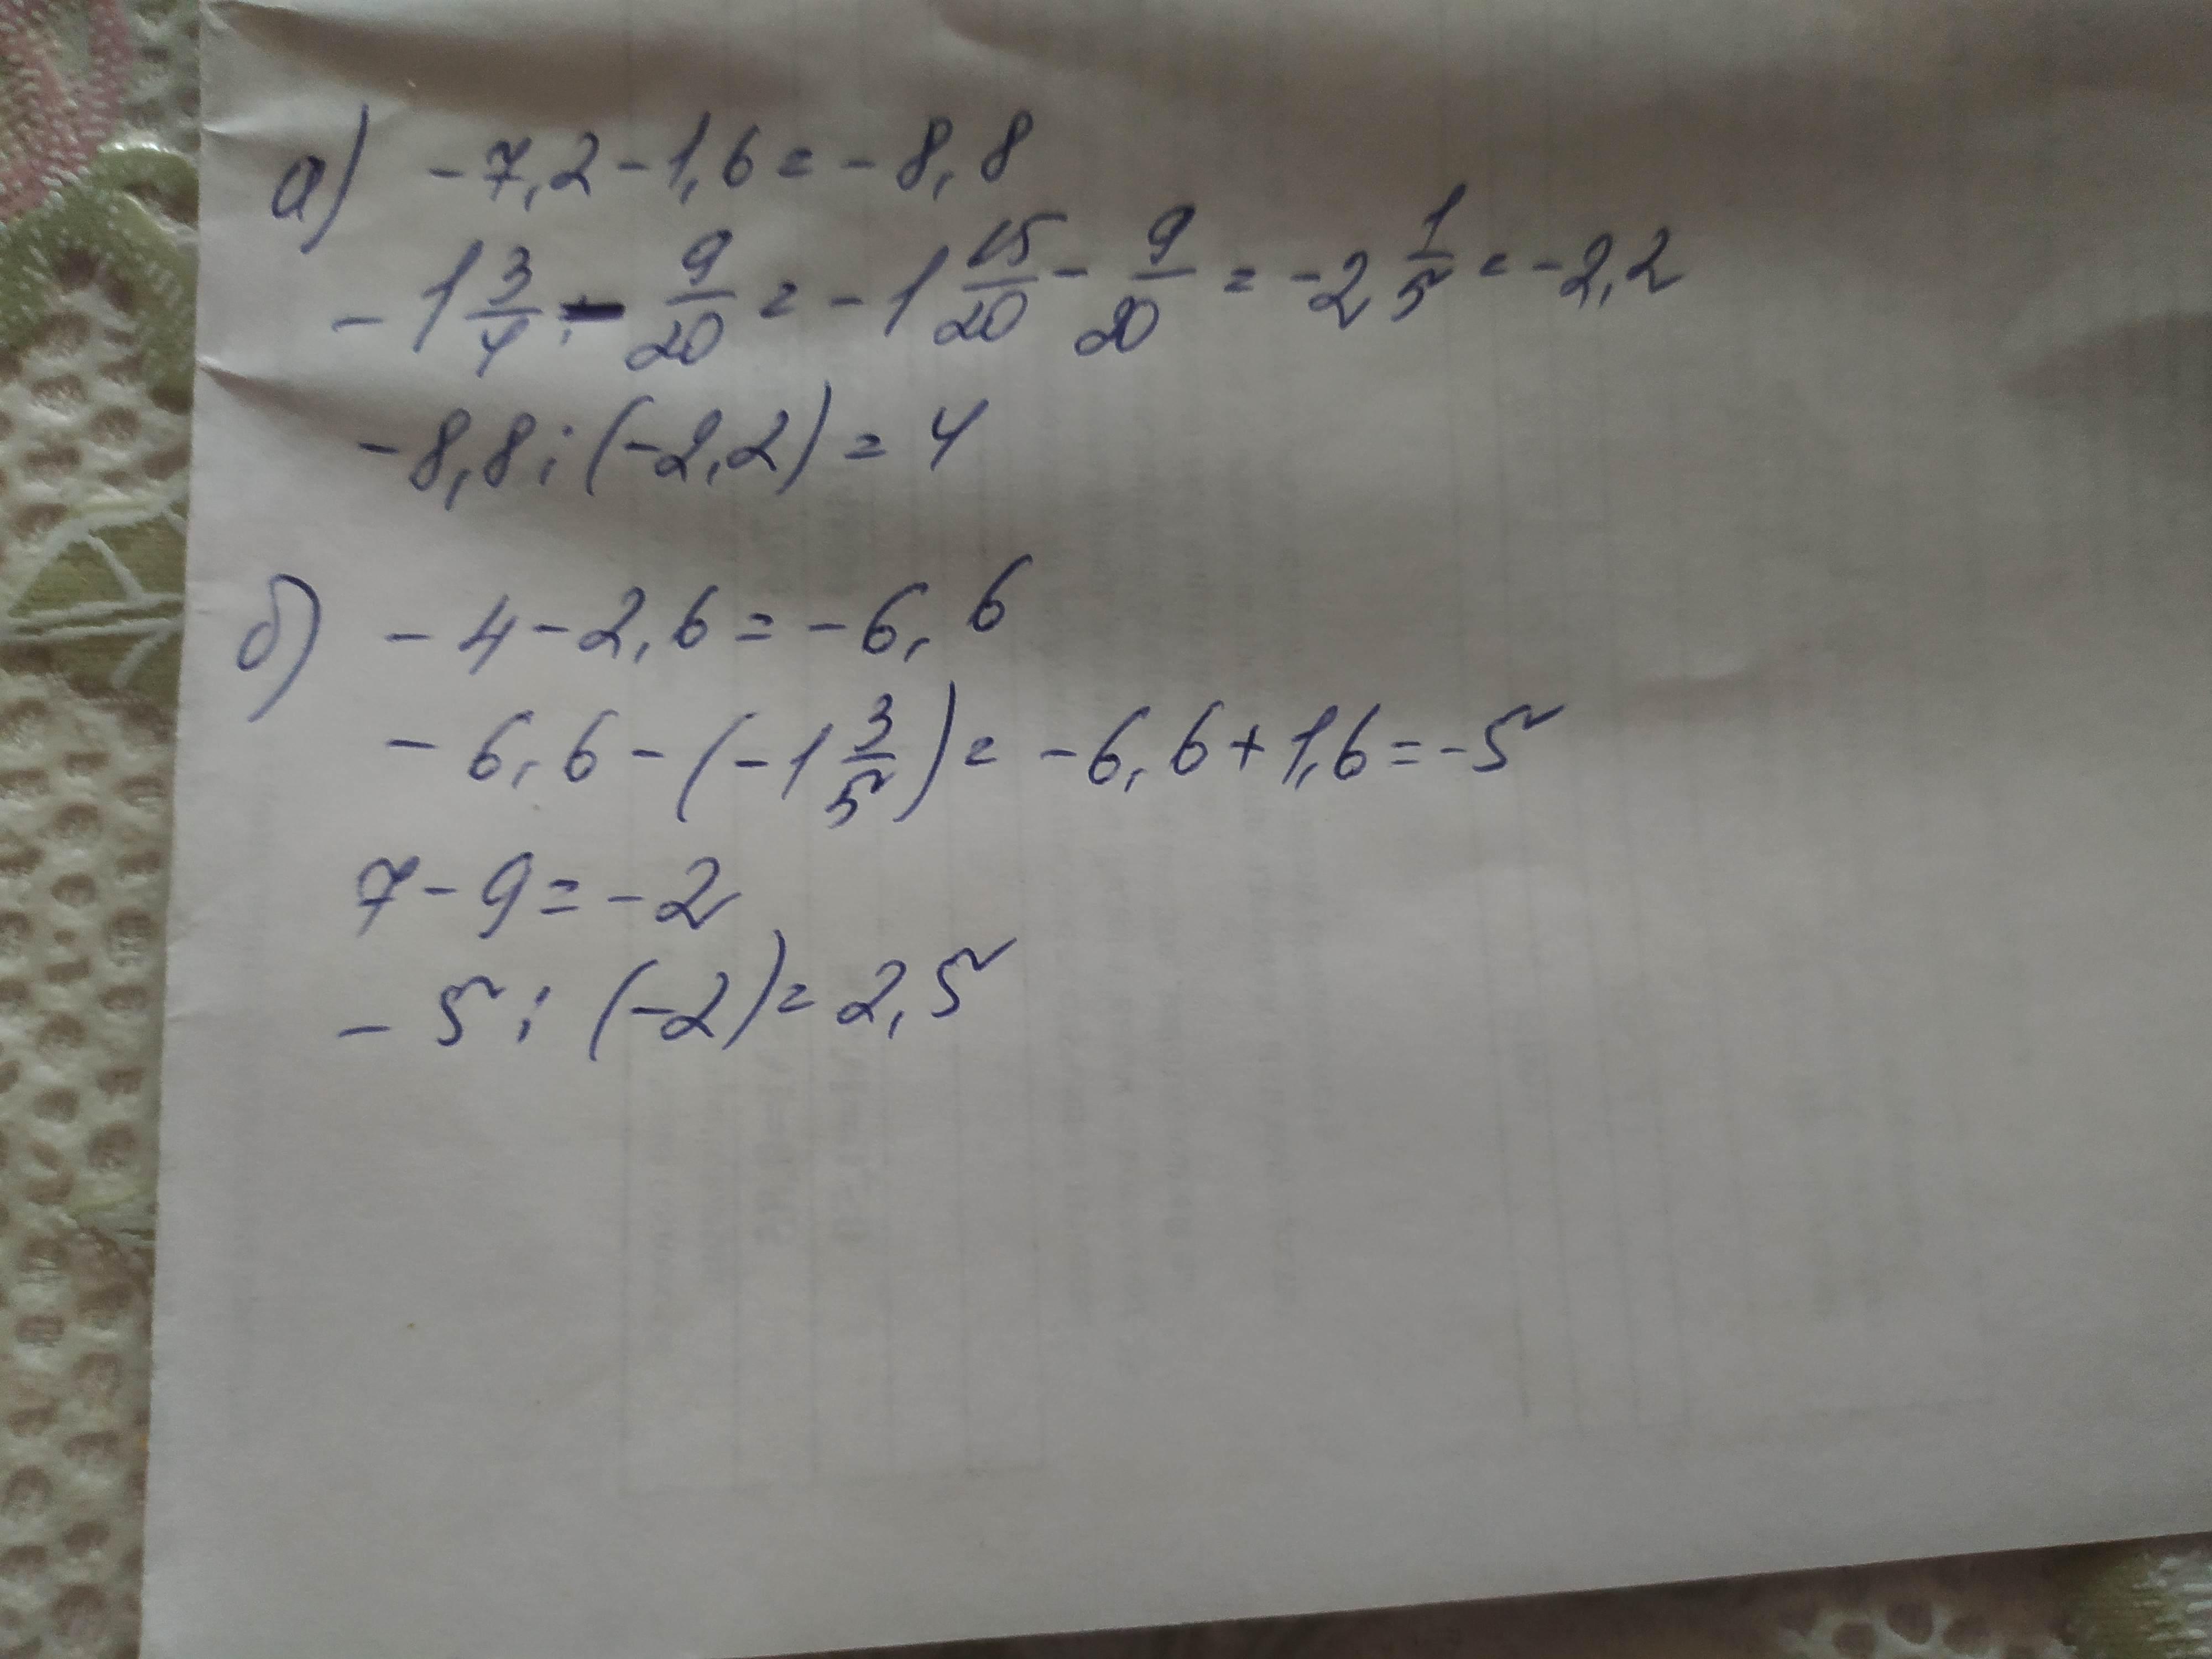 а) -7,2-1,6=-8,8
-1 3/4 - 9/20 = -1 15/20 - 9/20 = -2 1/5 = -2,2
-8,8:(-2,2)=4
б) -4-2,6=-6,6
-6,6-(-1 3/5)=-6,6+1,6=-5
7-9=-2
-5:(-2)=2,5